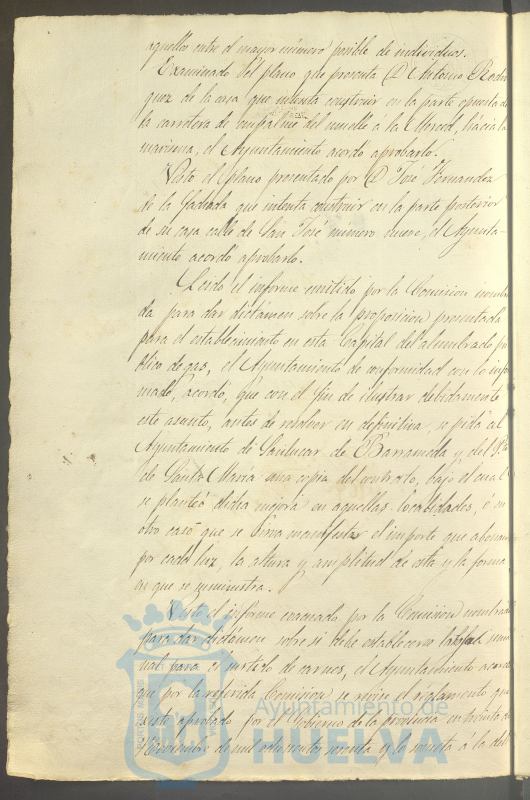 aquellos entre el mayor número posible de individuos.
Examinado el plano que presenta D. Antonio Rodri
guez de la casa que intenta construir en la parte opuesta de
la carretera de empalme del muelle á la Merced, hácia la
marisma, el Ayuntamiento acordó aprobarlo.
Visto el plano presentado por D. José Fernandez
de la fachada que intenta construir en la parte posterior
de su casa calle de San José número nueve, el Ayunta-
miento acordó aprobarlo.
Leido el informe emitido por la Comision nombra
da para dar dictámen sobre la proposicion presentada
para el establecimiento en esta Capital del alumbrado pú
blico de gas, el Ayuntamiento de conformidad con lo infor
mado, acordó, que con el fin de ilustrar debidamente
este asunto, antes de resolver en definitiva, se pida al
Ayuntamiento de Sanlucar de Barrameda y del Pto.
de Santa Maria una copia del contrato, bajo el cual
se planteó dicha mejora en aquellas localidades, ó en
otro caso que se sirva manifestar el importe que abonan
por cada luz, la altura y amplitud de esta y la forma
en que se suministra.
Visto el informe evacuado por la Comision nombrada
para dar dictamen sobre si debe establecerse
para el surtido de carnes, el Ayuntamiento acordó
que por la referida Comision se revise el reglamento que
existe aprobado por el Gobierno de la provincia en treinta de
Noviembre de mil ochocientos y lo someta á la deli
Ayuntamiento de
HUELVA